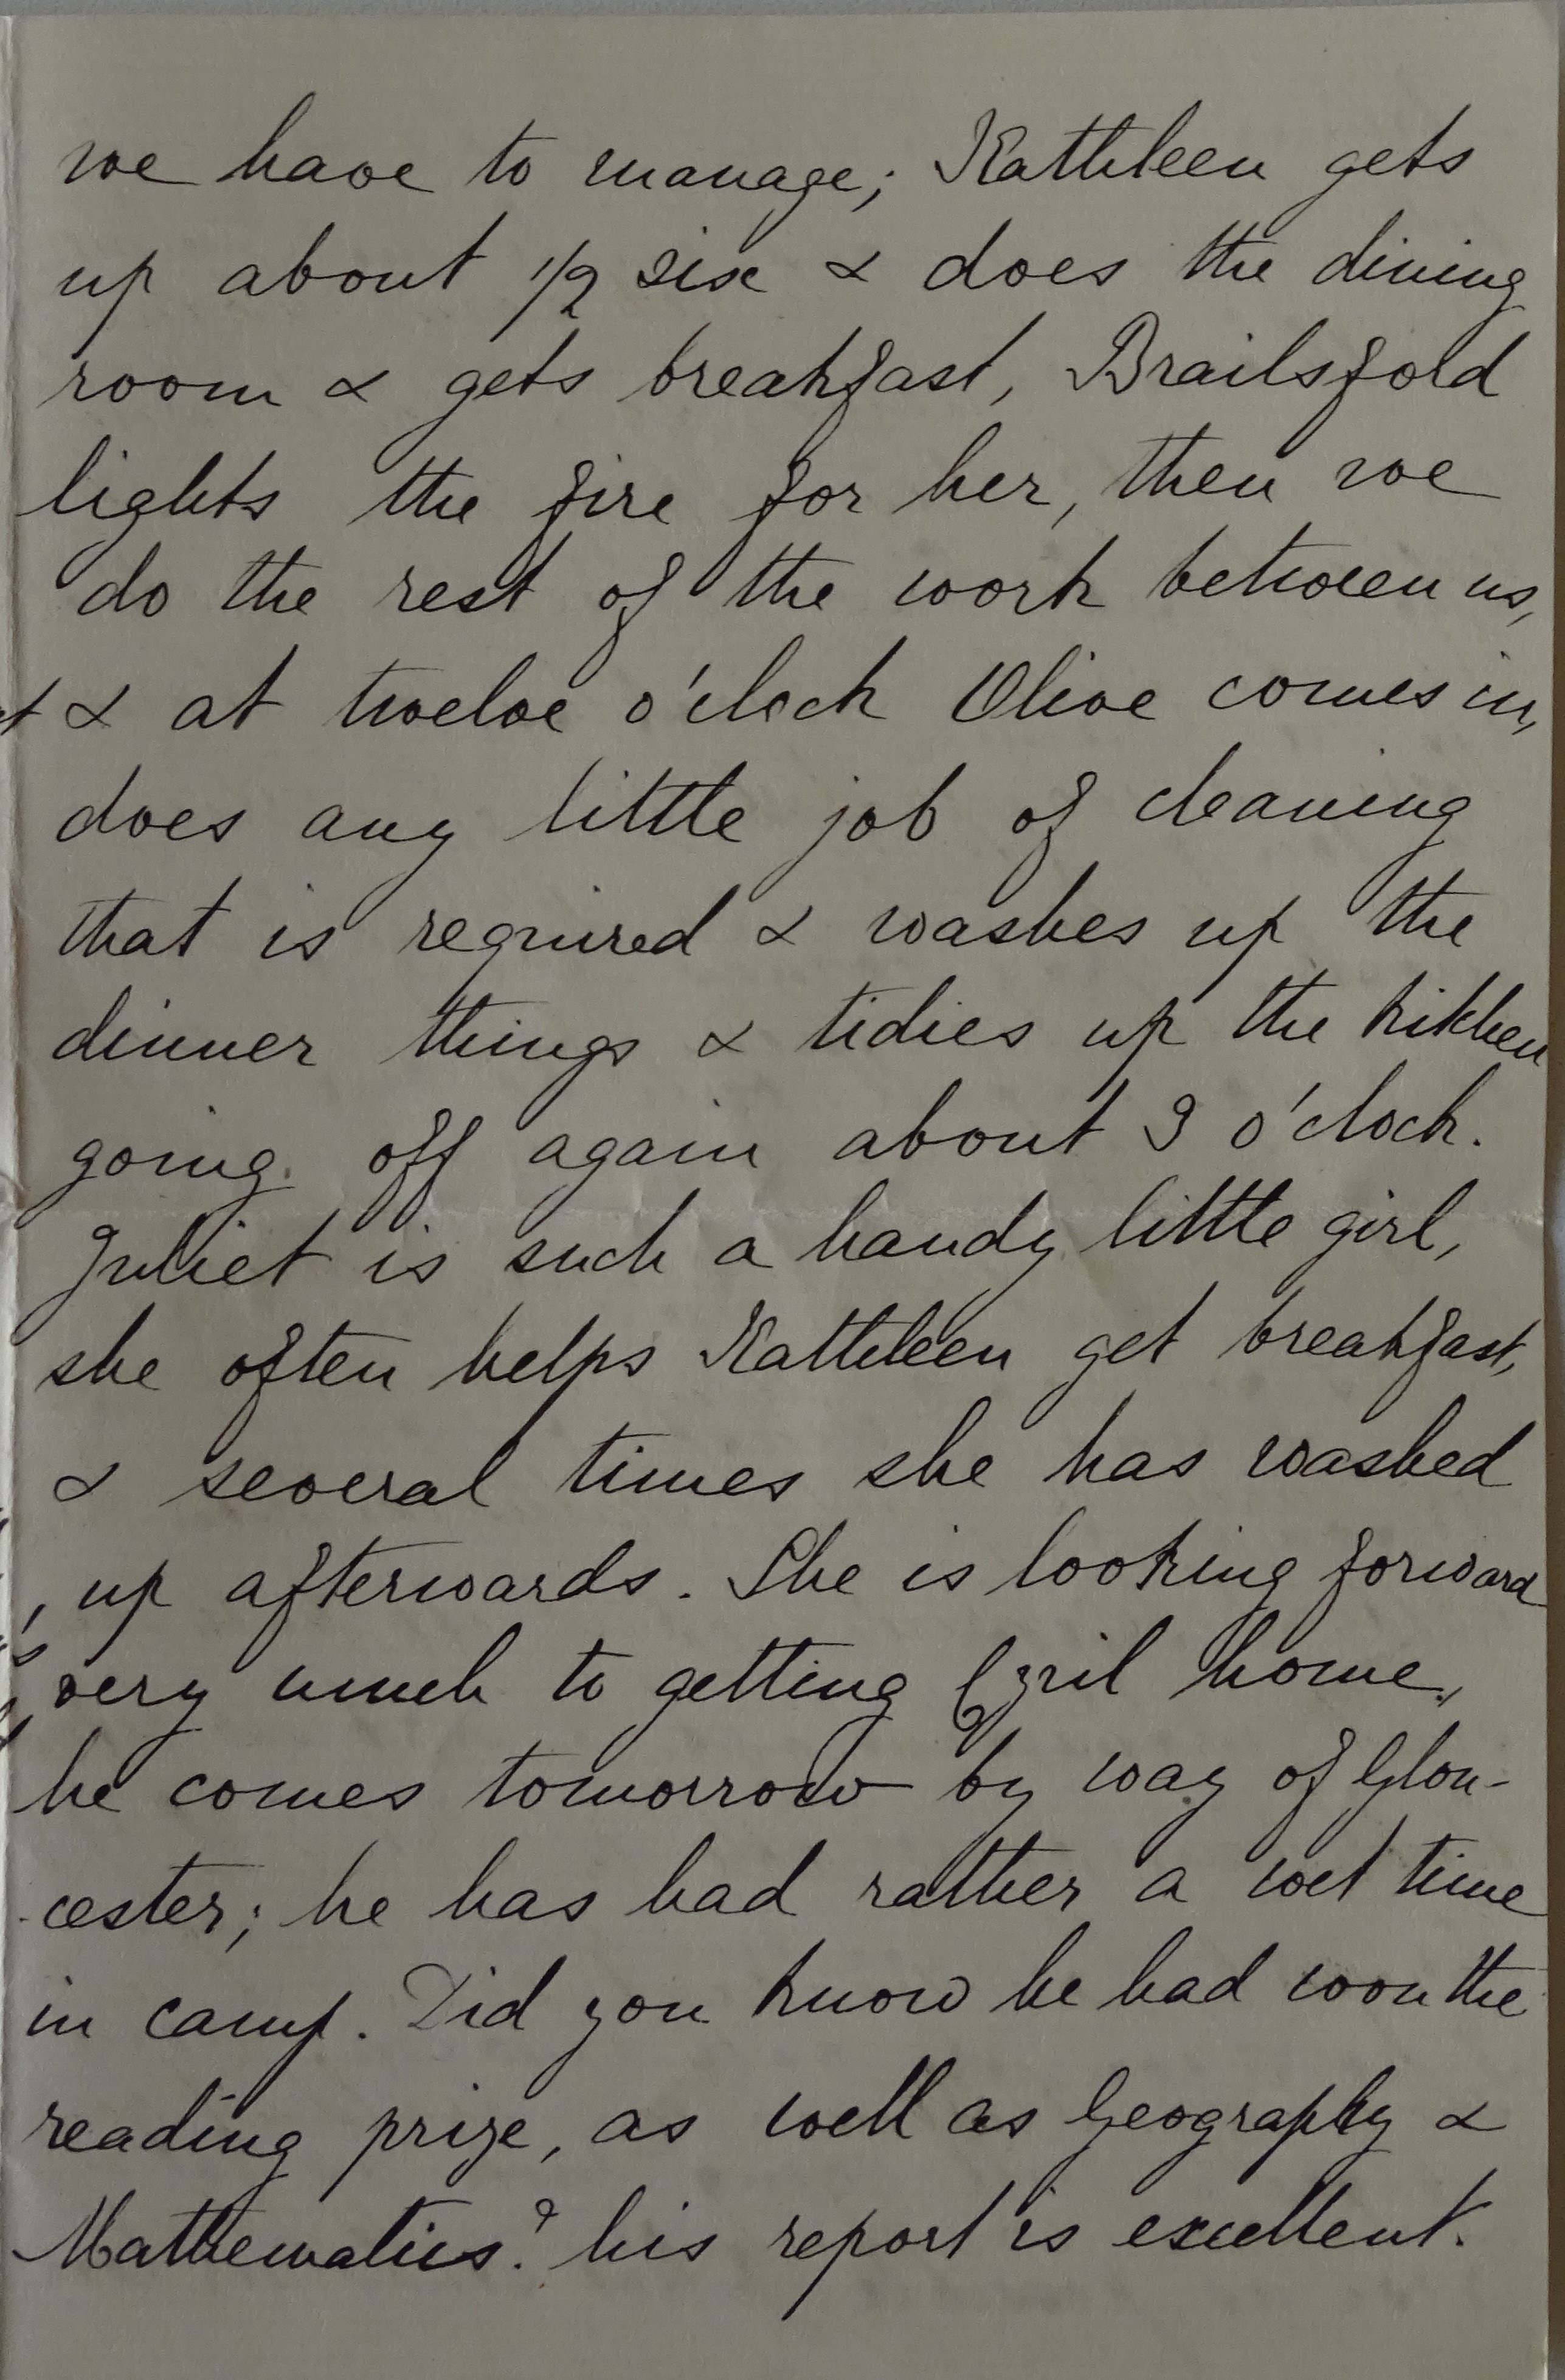 we have to manage; Kathleen gets
up about 1/2 six & does the dining
room & gets breakfast, Brailsfold
lights the fire for her, then we
do the rest of the work between us,
& at twelve o'clock Olive comes in,
does any little job of cleaning
that is required & washes up the
dinner things & tidies up the kitchen
going off again about 3 o'clock.
Juliet is such a handy little girl,
she often helps Kathleen get breakfast,
& several times she has washed
up afterwards. She is looking forward
very much to getting Cyril home,
he comes tomorrow by way of Glou-
-cester; he has had rather a wet time
in camp. Did you know he had won the
reading prize, as well as Geography &
Mathematics? his report is excellent.